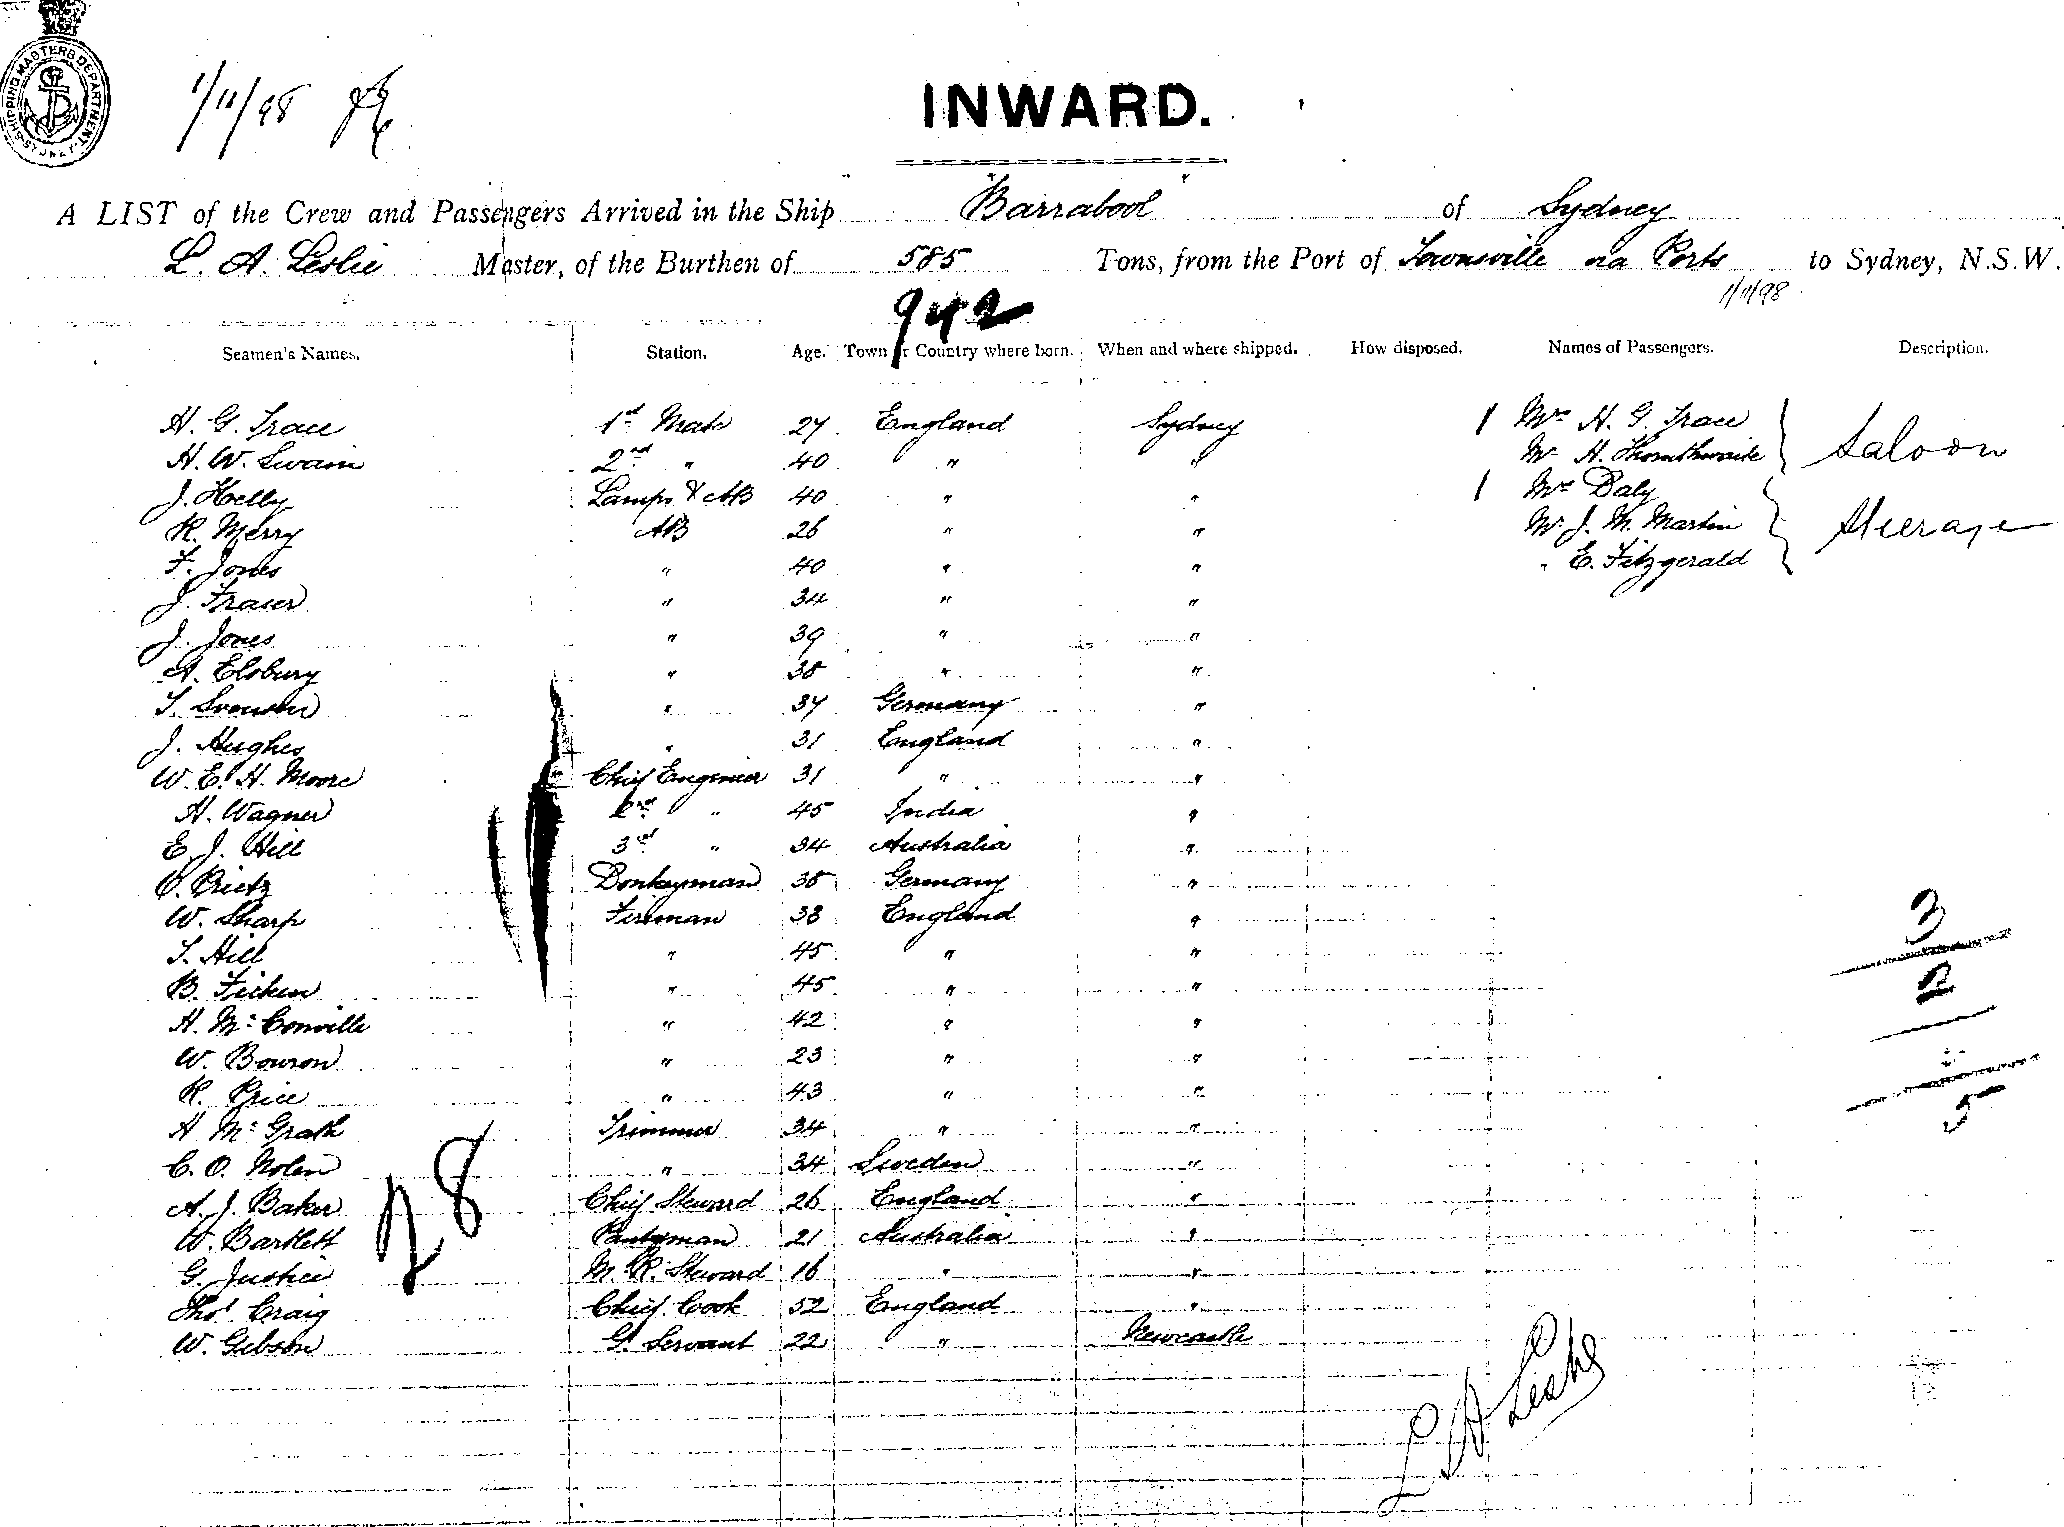 SHIPPING MASTERS DEPARTMENT SYDNEY
1/11/98
INWARD.
A LIST of the Crew and Passengers Arrived in the Ship "Barrabool" of Sydney
L. A. Leslie Master, of the Burthen of 585 Tons, from the Port of Townsville via Ports to Sydney, N.S.W.
1/11/98
942
Seamen's Names. Station. Age. Town or Country where born. When and where shipped. How disposed. Names of Passengers. Description.
H. G. Trace 1st Mate 27 England Sydney 1 Mrs H. G. Trace Saloon
H. W. Swain 2nd " 40 " " Mr H. Thornthwaite
J. Kelly Lamps & AB 40 " " 1 Mrs Daly Steerage
R. Merry AB 26 " " Mr J. M. Martin
F. Jones " 40 " " " E. Fitzgerald
J. Fraser " 34 " "
J. Jones " 39 " "
A. Elsbury " 38 " "
T. Svenson " 37 Germany "
J. Hughes " 31 England "
W. E. H. Moore Chief Engineer 31 " "
H. Wagner 2nd " 45 India "
E. J. Hill 3rd " 34 Australia "
O. Prietz Donkeyman 38 Germany "
W. Sharp Fireman 38 England "
T. Hill " 45 " "
B. Ficken " 45 " "
H. McConville " 42 " "
W. Bowron " 23 " "
R. Price " 43 " "
H McGrath Trimmer 34 " "
C. O. Nolen " 34 Sweden "
A. J. Baker Chief Steward 26 England "
W. Bartlett Pantryman 21 Australia "
G. Justice M. R. Steward 16 " "
Thos Craig Chief Cook 52 England "
W. Gibson G. Servant 22 " Newcastle
28
3
2
5
L A Leslie